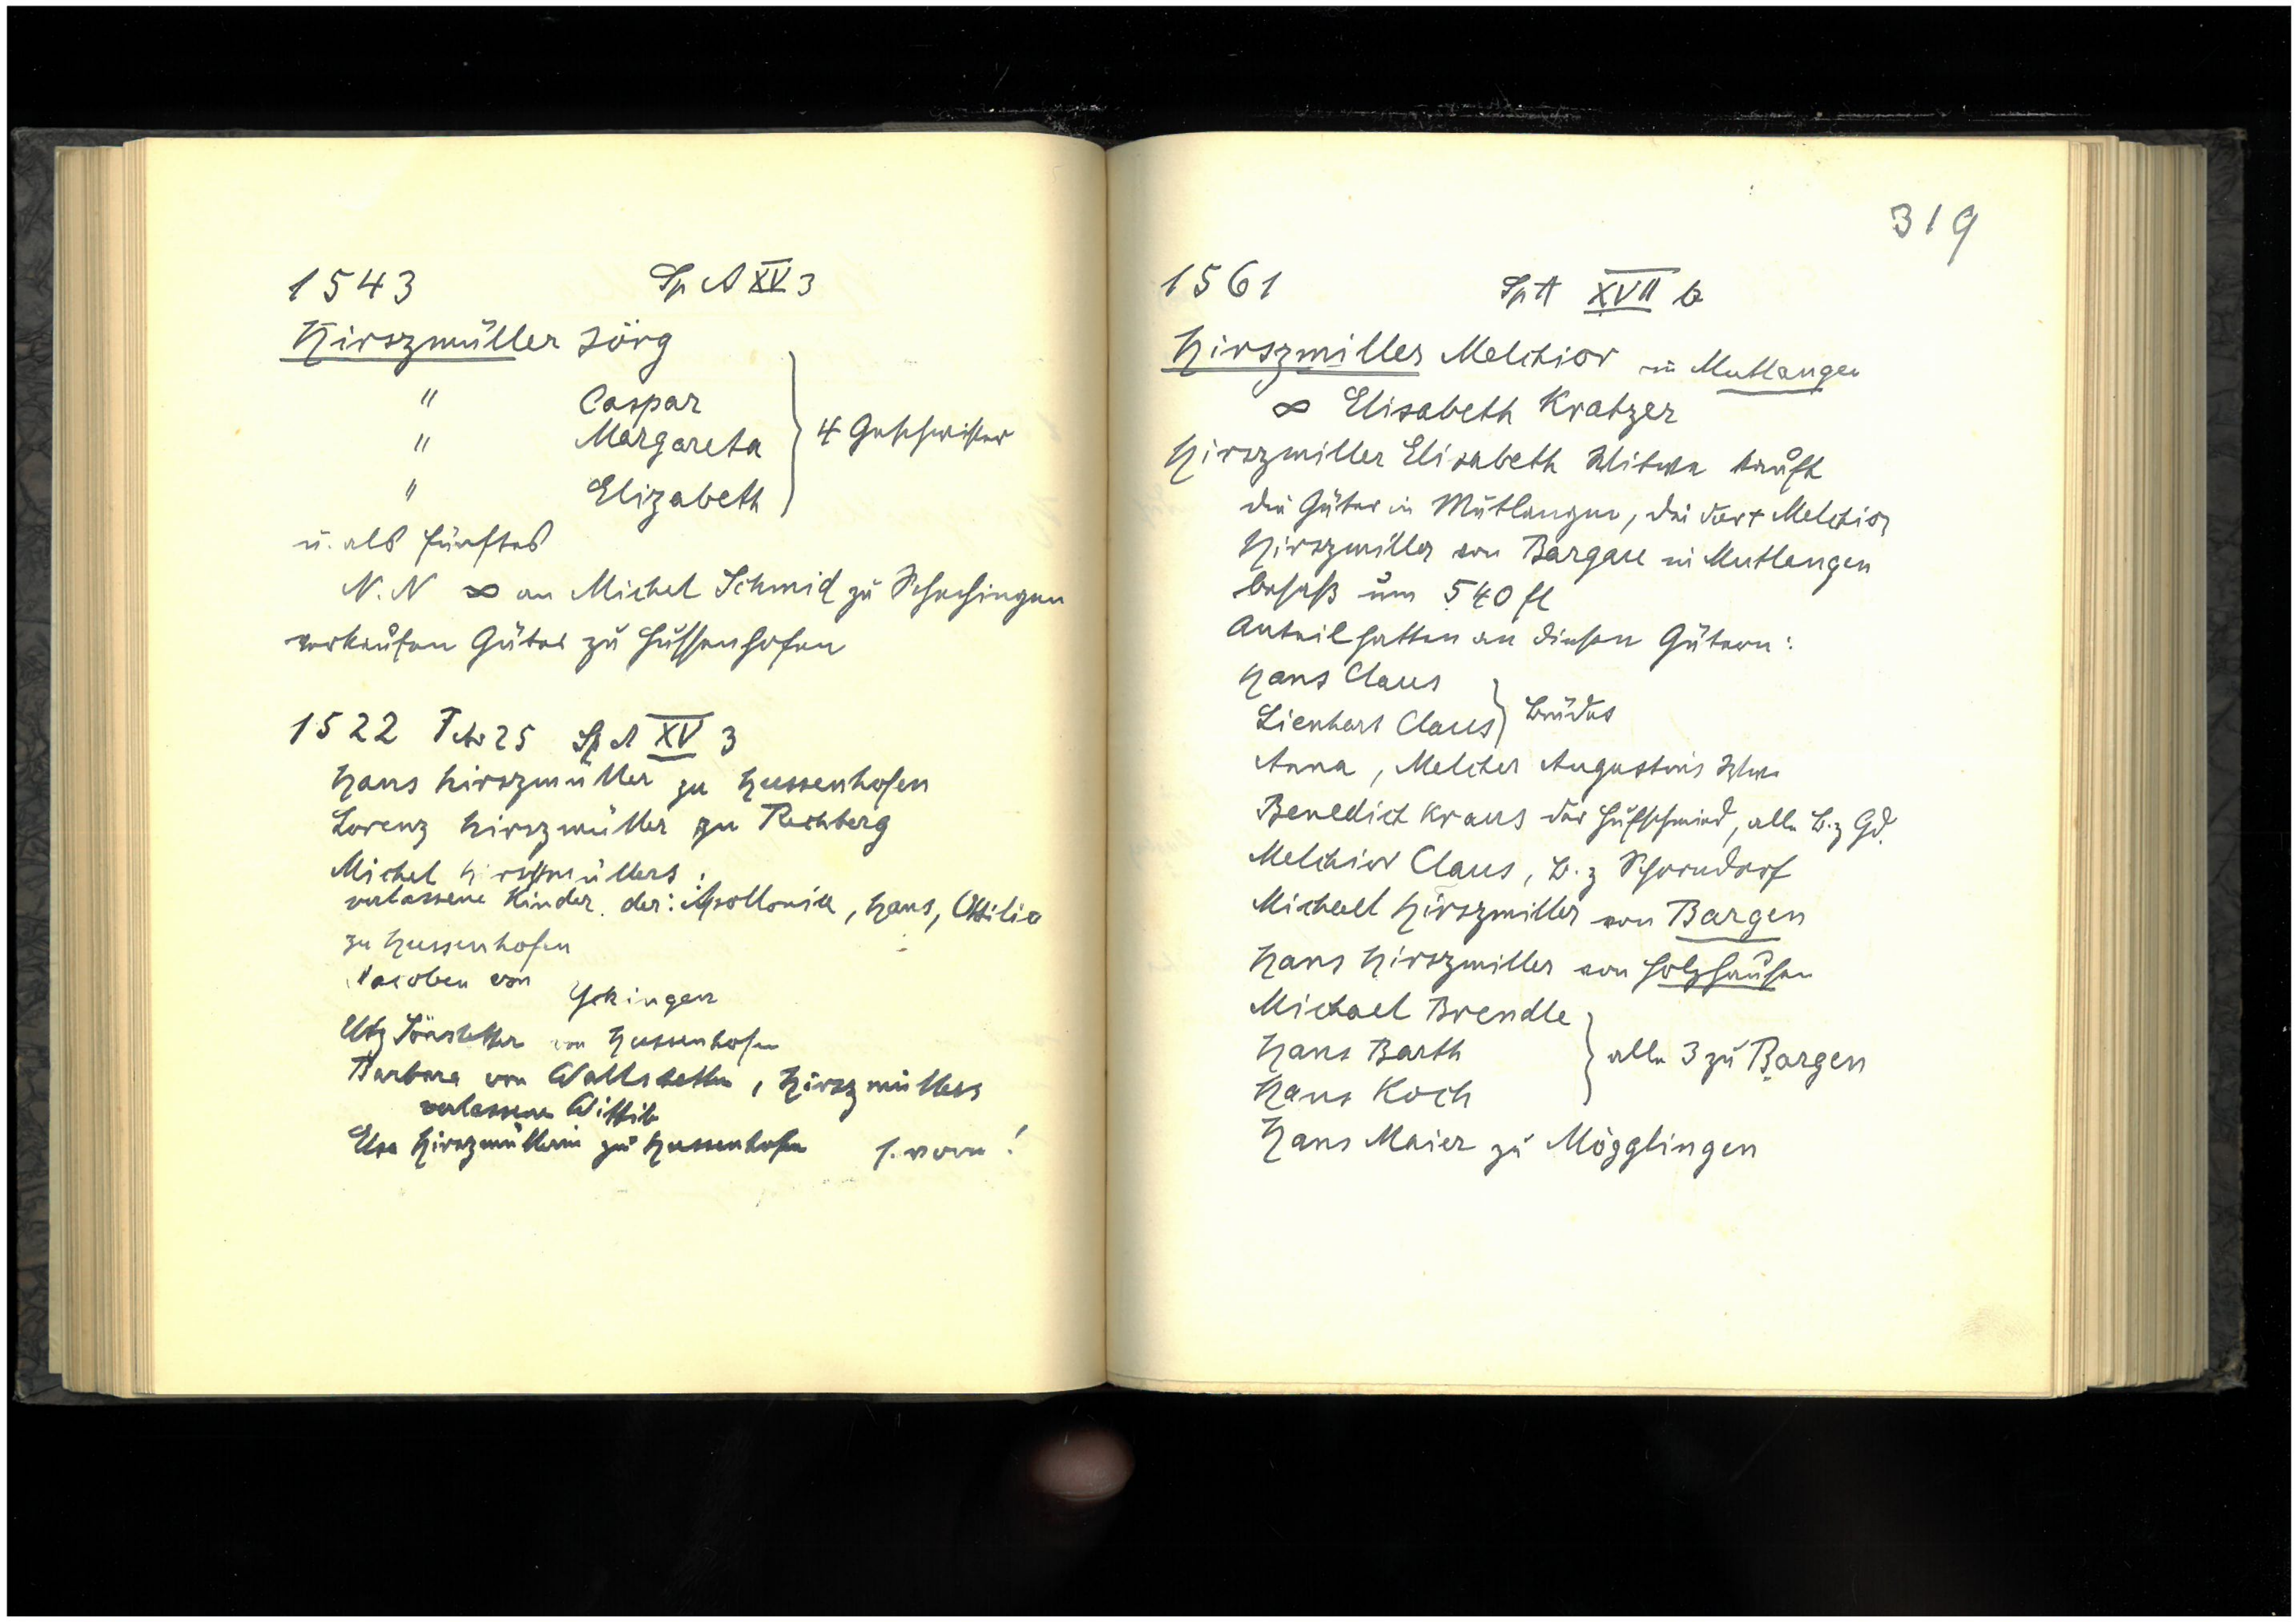 1543 Sp A XV 3
Hirszmüller Jörg
" Caspar
" Margareta
" Elizabeth
4 Geschwister
u. als fünftes
N.N ∞ an Michel Schmid zu Schechingen
verkaufen Güter zu Hussenhofen
1522 Febr 25 Sp A XV 3
Hans Hirszmüller zu Hussenhofen
Lorenz Hirszmüller zu Rechberg
Michel Hirszmüllers
verlassene Kinder der: Apollonia, Hans, Ottilia
zu Hussenhofen
Jacoben von Yckingen
Utz von Hussenhofen
Barbara von Waltstetten, Hirszmüllers
verlassene Wittib
Elsa Hirszmüllerin zu Hussenhofen s. vorn!
319
1561 Sp A XVII b
Hirszmiller Melchior in Mutlangen
∞ Elisabeth Kratzer
Hirszmiller Elisabeth Witwe kauft
die Güter in Mutlangen, die der + Melchior
Hirszmiller von Bargau in Mutlangen
besaß um 540 fl
Anteil hatten an diesen Gütern:
Hans Claus
Lienhart Claus
Brüder
Anna, Melcher Augustins Wwe
Benedict Kraus der Hufschmied, alle B. z Gd.
Melchior Claus, B. z Schorndorf
Michael Hirszmiller von Bargen
Hans Hirszmiller von Holzhausen
Michael Brendle
Hans Barth
Hans Koch
alle 3 zu Bargen
Hans Maier zu Mögglingen